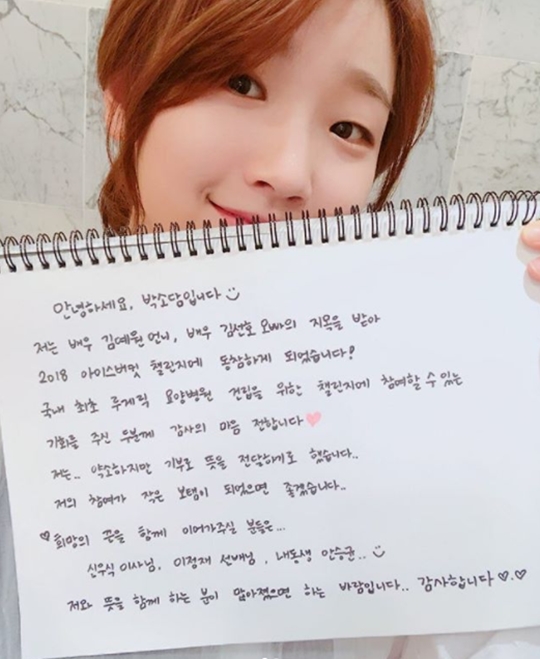 안녕하세요, 박소담입니다
저는 배우 김예원 언니, 배우 김선호 오빠의 지목을 받아
2018 아이스버킷 챌린지에 동참하게 되었습니다!
국내 최초 루게릭 요양병원 건립을 위한 챌린지에 참여할 수 있는
기회를 주신 두분께 감사의 마음 전합니다
저는.. 약소하지만 기부로 뜻을 전달하기로 했습니다..
저의 참여가 작은 보탬이 되었으면 좋겠습니다..
♡희망의 끈을 함께 이어가주실 분들은...
신우식 이사님, 이정재 선배님, 내동생 안승균..
저와 뜻을 함께 하는 분이 많아졌으면 하는 바람입니다.. 감사합니다♡.♡